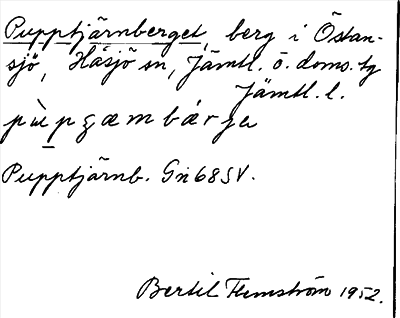 Pupptjärnberget, berg i Östan-
sjö, Håsjö sn, Jämtl. ö. doms. tg
Jämtl. l.
pùpgæmbárga
Pupptjärnb. Gn 68 SV.
Bertil Flemström 1952.